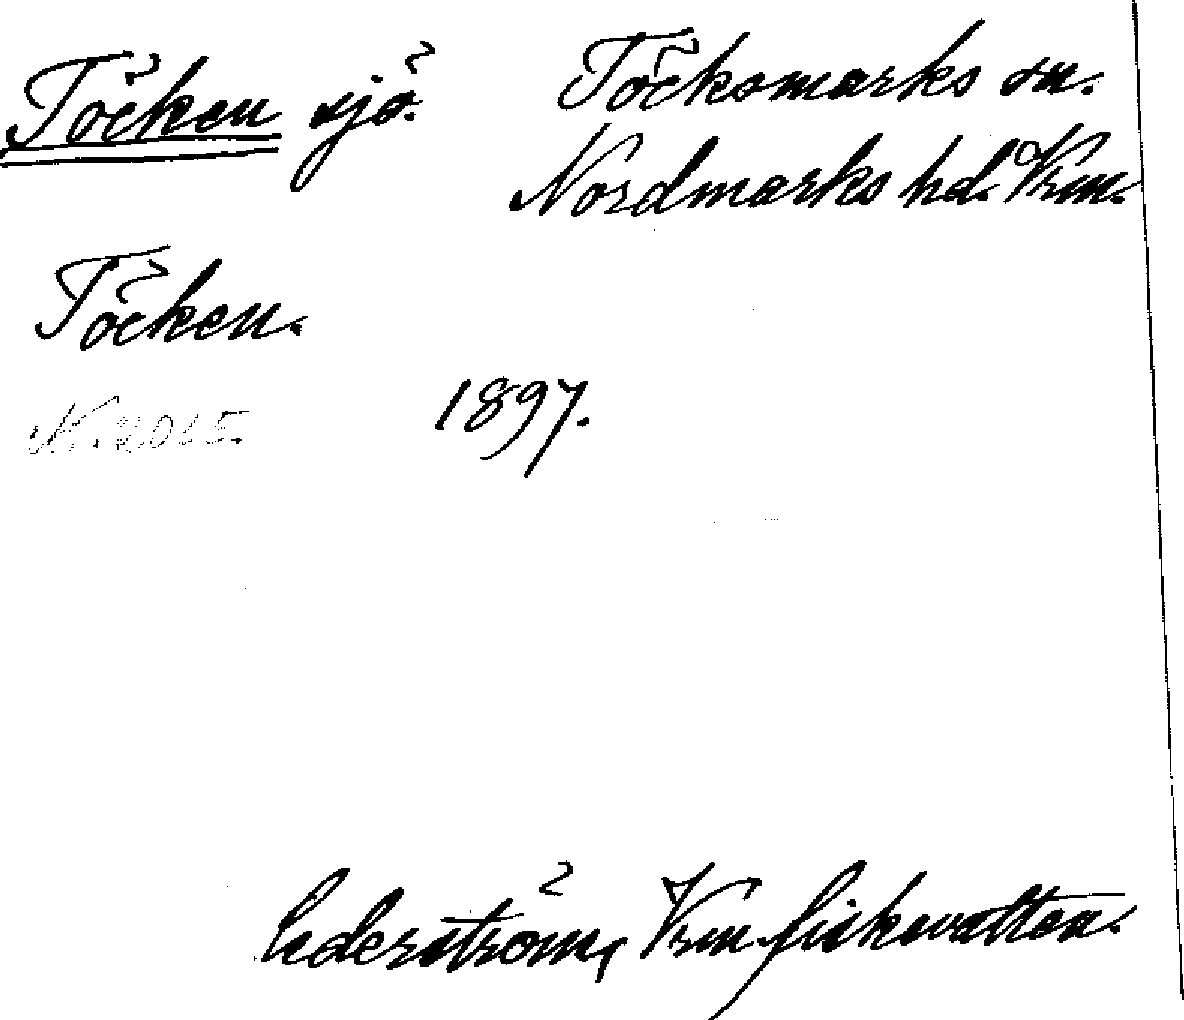 Töcken sjö. Töcksmarks sn.
Nordmarks hd. Vrm.
Töcken.
N. 2015. 1897.
Cederström, Vrm fiskevatten.